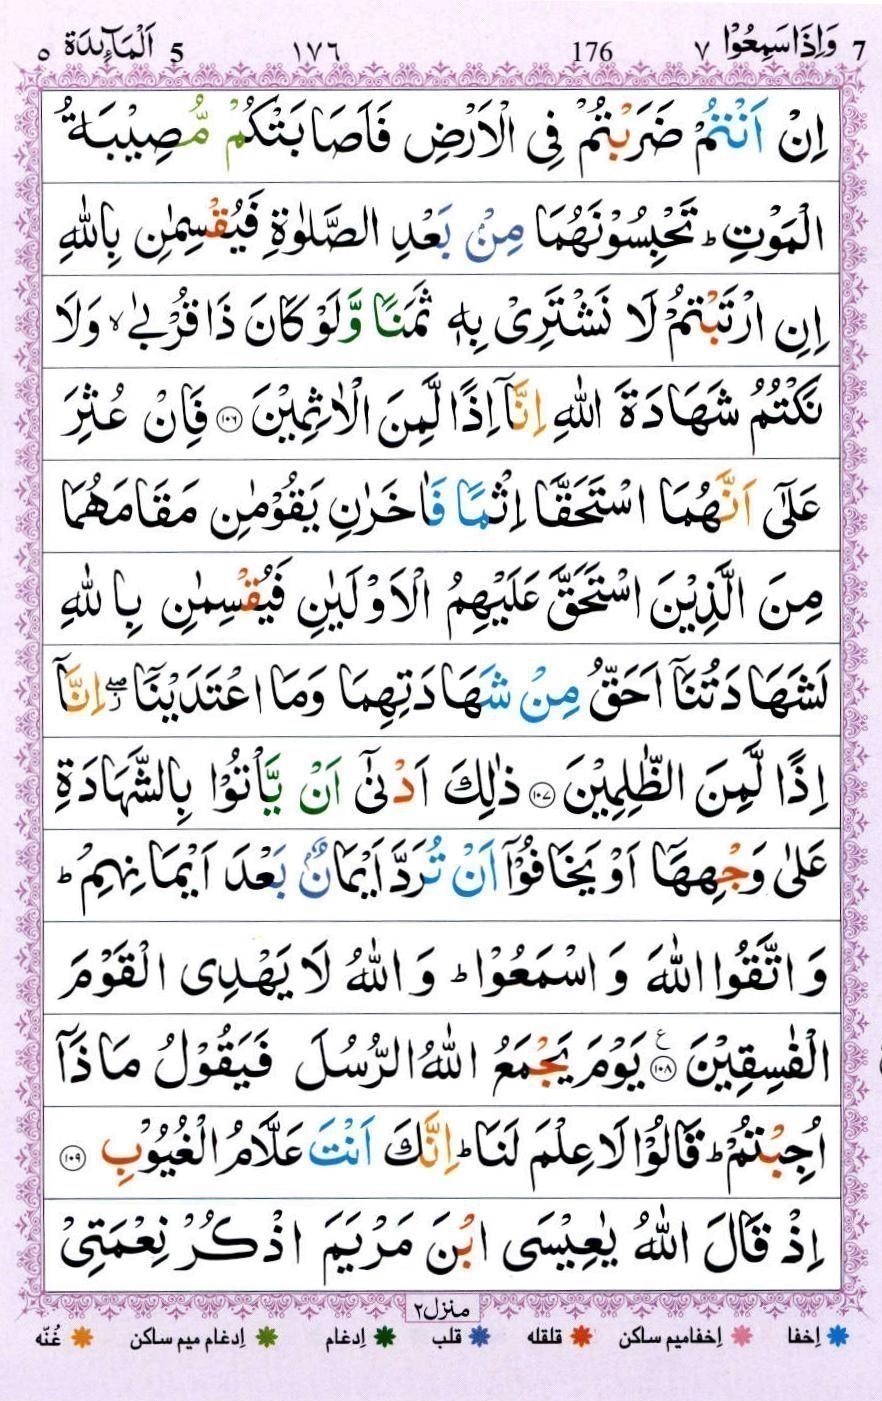 وَاِذَاسَمِعُوْا ٧ 7 176 ١٧٦ اَلْمَآئِدَة ٥ 5
اِنْ اَنْتُمْ ضَرَبْتُمْ فِى الْاَرْضِ فَاَصَابَتْكُمْ مُّصِيْبَةُ
الْمَوْتِ ؕ تَحْبِسُوْنَهُمَا مِنْۢ بَعْدِ الصَّلٰوةِ فَيُقْسِمٰنِ بِاللّٰهِ
اِنِ ارْتَبْتُمْ لَا نَشْتَرِىْ بِهٖ ثَمَنًا وَّلَوْ كَانَ ذَا قُرْبٰى ۙ وَلَا
نَكْتُمُ شَهَادَةَ اللّٰهِ اِنَّاۤ اِذًا لَّمِنَ الْاٰثِمِيْنَ ﴿١٠٦﴾ فَاِنْ عُثِرَ
عَلٰٓى اَنَّهُمَا اسْتَحَقَّاۤ اِثْمًا فَاٰخَرٰنِ يَقُوْمٰنِ مَقَامَهُمَا
مِنَ الَّذِيْنَ اسْتَحَقَّ عَلَيْهِمُ الْاَوْلَيٰنِ فَيُقْسِمٰنِ بِاللّٰهِ
لَشَهَادَتُنَاۤ اَحَقُّ مِنْ شَهَادَتِهِمَا وَمَا اعْتَدَيْنَاۤ ۖ اِنَّاۤ
اِذًا لَّمِنَ الظّٰلِمِيْنَ ﴿١٠٧﴾ ذٰلِكَ اَدْنٰٓى اَنْ يَّاْتُوْا بِالشَّهَادَةِ
عَلٰى وَجْهِهَاۤ اَوْ يَخَافُوْۤا اَنْ تُرَدَّ اَيْمَانٌۢ بَعْدَ اَيْمَانِهِمْ ؕ
وَاتَّقُوا اللّٰهَ وَاسْمَعُوْا ؕ وَاللّٰهُ لَا يَهْدِى الْقَوْمَ
الْفٰسِقِيْنَ ﴿١٠٨﴾ ع يَوْمَ يَجْمَعُ اللّٰهُ الرُّسُلَ فَيَقُوْلُ مَاذَاۤ
اُجِبْتُمْ ؕ قَالُوْا لَا عِلْمَ لَنَا ؕ اِنَّكَ اَنْتَ عَلَّامُ الْغُيُوْبِ ﴿١٠٩﴾
اِذْ قَالَ اللّٰهُ يٰعِيْسَى ابْنَ مَرْيَمَ اذْكُرْ نِعْمَتِىْ
منزل٢
اِخفا اِخفامیم ساکن قلقله قلب اِدغام اِدغام میم ساکن غُنّه